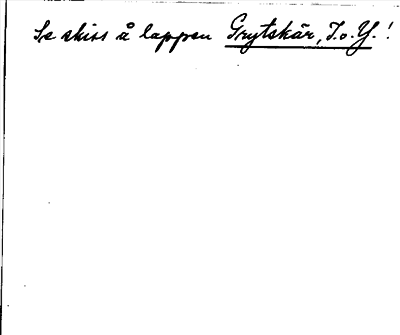 Se skiss å lappen Grytskär, I. o. Y.!